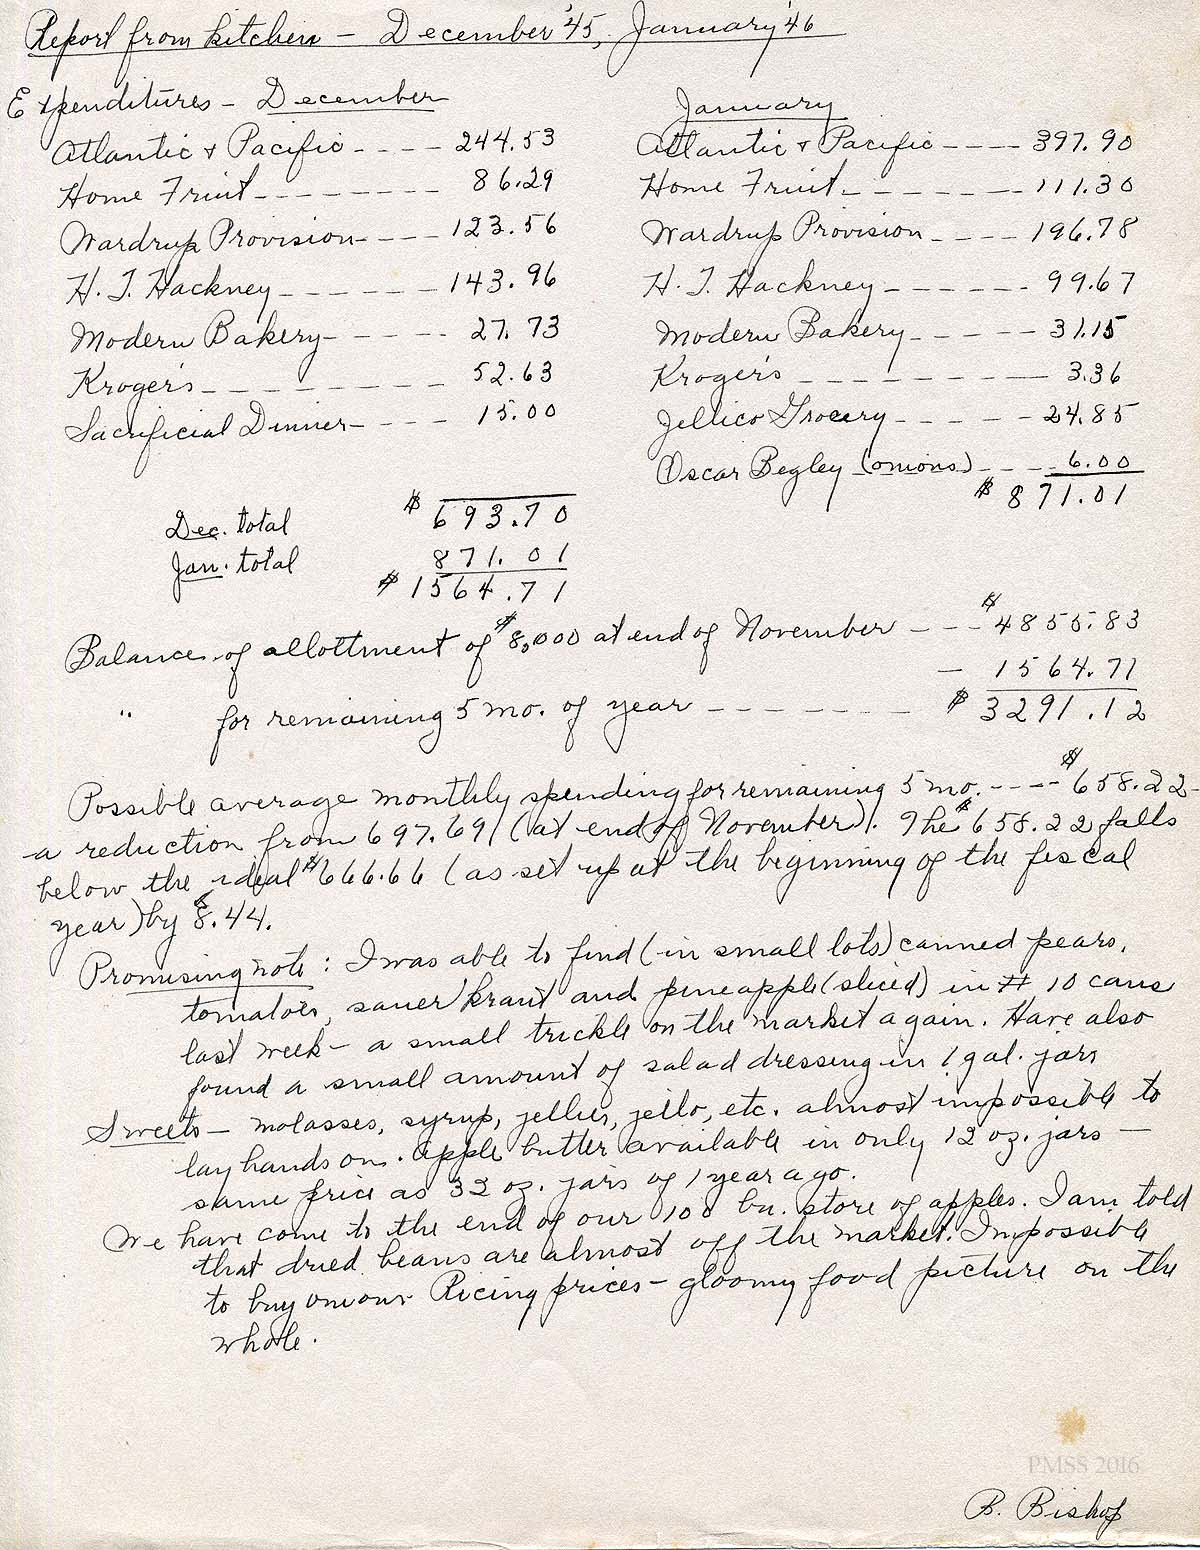 Report from kitchen - December '45, January '46
Expenditures - December
Atlantic & Pacific ---- 244.53
Home Fruit -------- 86.29
Wardrup Provision ---- 123.56
H. T. Hackney ------- 143.96
Modern Bakery ----- 27.73
Kroger's --------- 52.63
Sacrificial Dinner ---- 15.00
January
Atlantic & Pacific ---- 397.90
Home Fruit -------- 111.30
Wardrup Provision ---- 196.78
H. T. Hackney ------ 99.67
Modern Bakery ----- 31.15
Kroger's --------- 3.36
Jellico Grocery ----- 24.85
Oscar Begley (onions) ---- 6.00
$ 871.01
Dec. total $ 693.70
Jan. total 871.01
$ 1564.71
Balance of allottment of $8,000 at end of November --- $4855.83
- 1564.71
" for remaining 5 mo. of year ------- $ 3291.12
Possible average monthly spending for remaining 5 mo. ---- $658.22 -
a reduction from 697.69 (at end of November). The $658.22 falls
below the ideal $666.66 (as set up at the beginning of the fiscal
year) by 8.44.
Promising note: I was able to find (in small lots) canned pears,
tomatoes, sauer kraut and pineapple (sliced) in # 10 cans
last week - a small trickle on the market again. Have also
found a small amount of salad dressing in 1 gal. jars
Sweets - molasses, syrup, jellies, jello, etc. almost impossible to
lay hands on. Apple butter available in only 12 oz. jars -
same price as 32 oz. jars of 1 year ago.
We have come to the end of our 100 bu. store of apples. I am told
that dried beans are almost off the market. Impossible
to buy onions. Ricing prices - gloomy food picture on the
whole.
PMSS 2016
B. Bishop